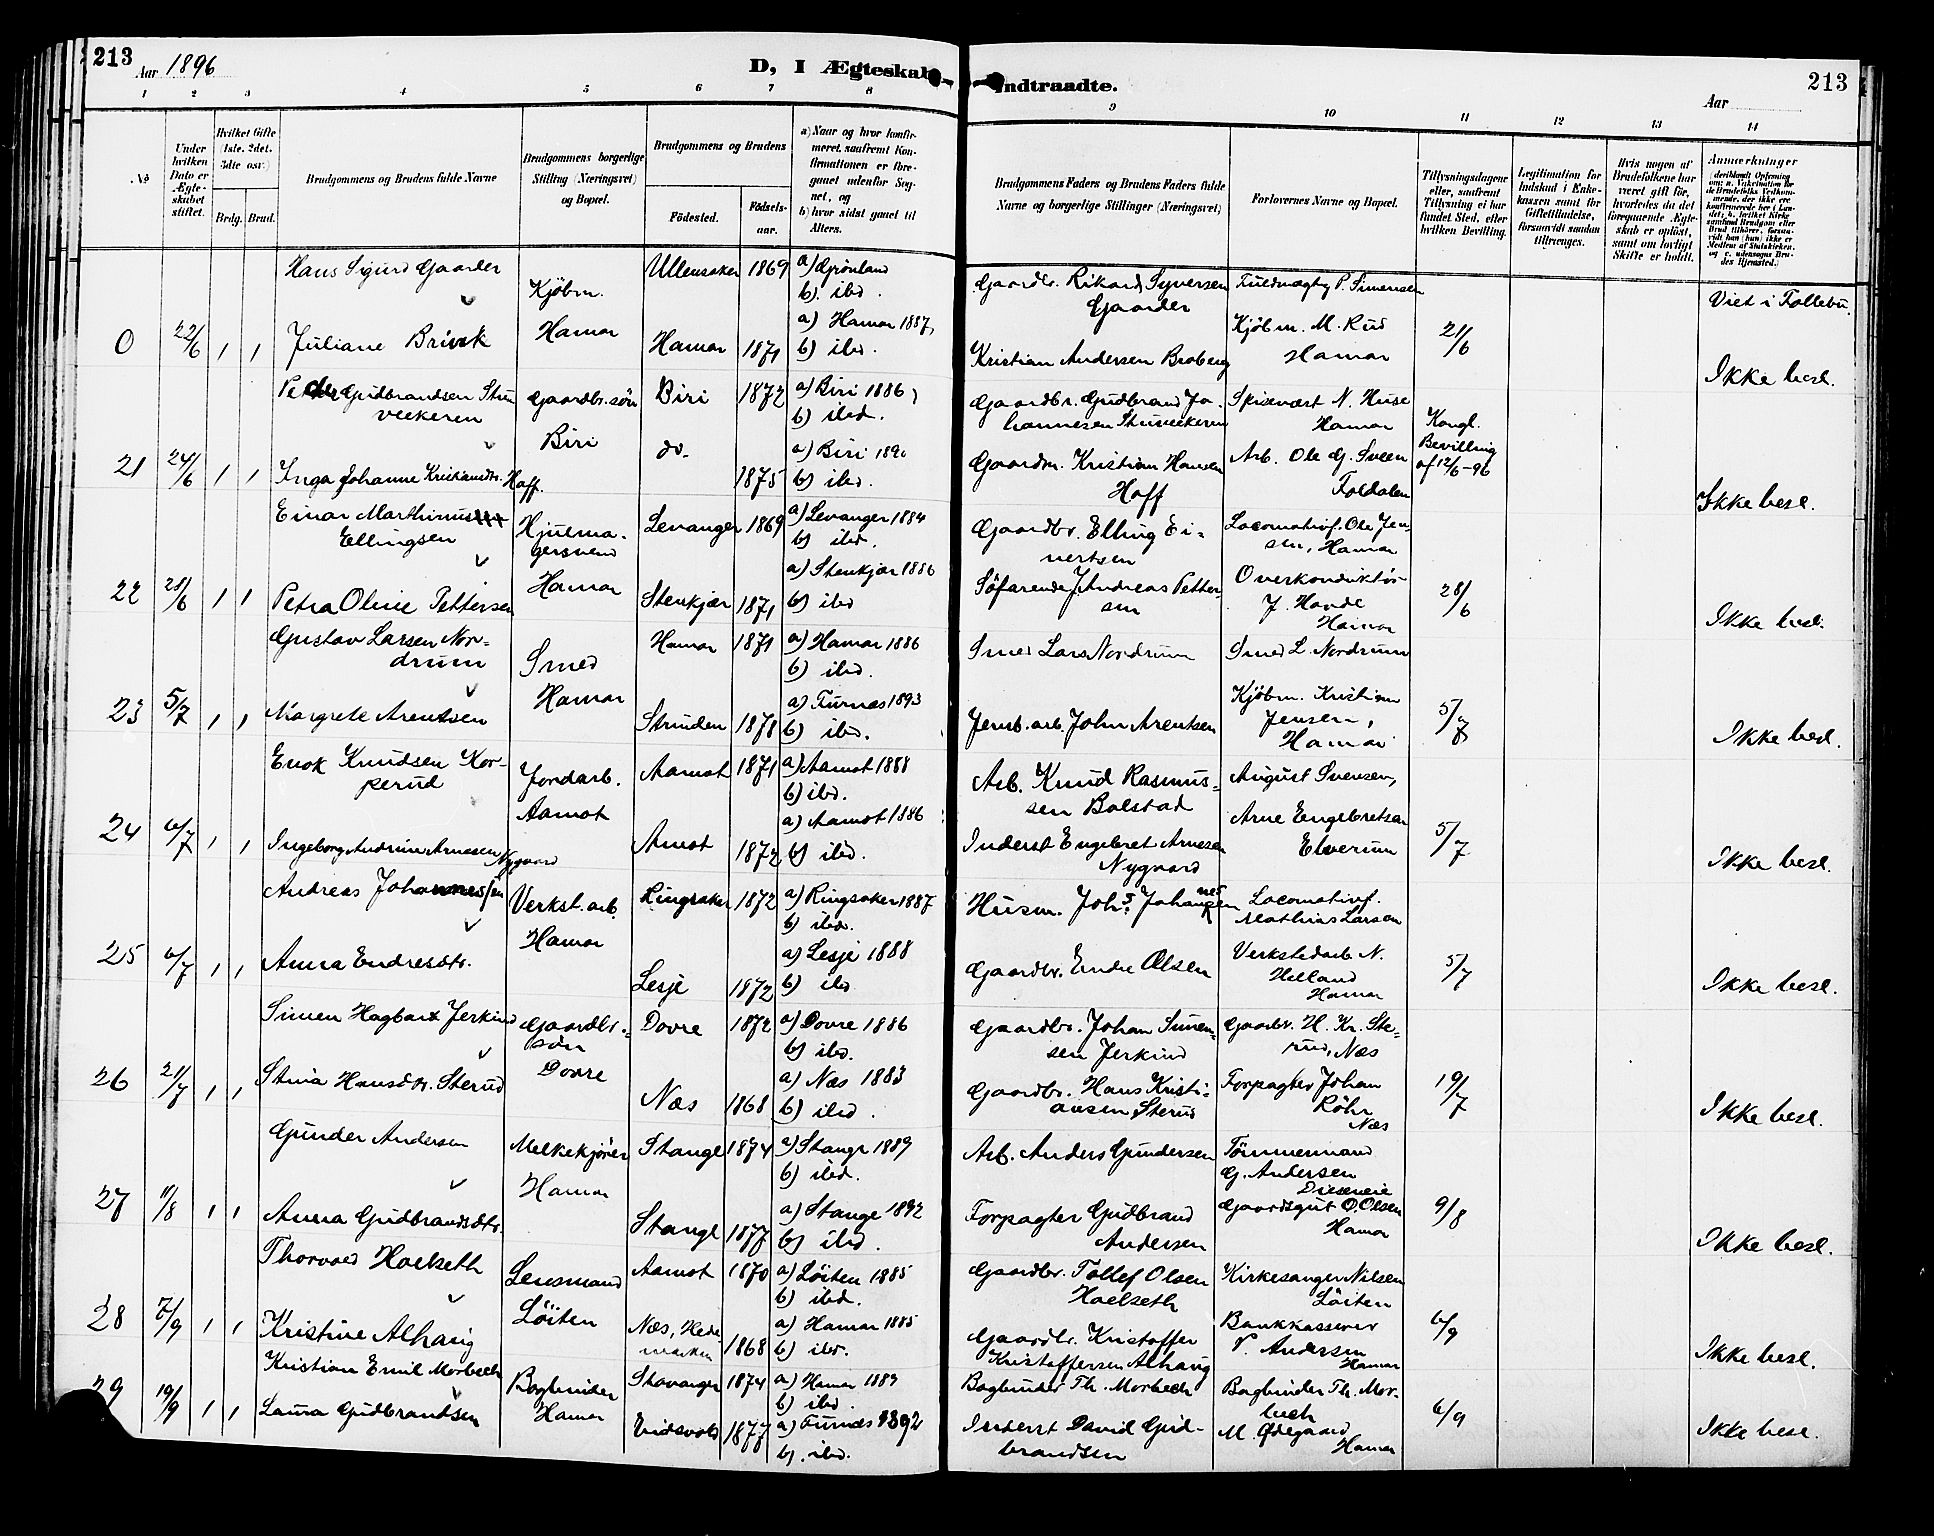 213
Aar 1896
D, I Ægteskab
Indtraadte.
Aar
213
1 2 3 4 5 6 7 8 9 10 11 12 13 14
No
Under hvilken Dato er Ægteskabet stiftet.
Hvilket Gifte (1ste, 2det, 3die osv.)
Brdg. Brud.
Brudgommens og Brudens fulde Navne
Brudgommens borgerlige Stilling (Næringsvei) og Bopæl.
Brudgommens og Brudens
Fødested.
Fødselsaar.
a) Naar og hvor konfirmeret, saafremt Konfirmationen er foregaaet udenfor Sognet, og
b) hvor sidst gaaet til Alters.
Brudgommens Faders og Brudens Faders fulde Navne og borgerlige Stillinger (Næringsvei)
Forlovernes Navne og Bopæl.
Tillysningsdagene eller, saafremt Tillysning ei har fundet Sted, efter hvilken Bevilling.
Legitimation for Indskud i Enkekassen samt for Giftetilladelse, forsaavidt saadan tiltrænges.
Hvis nogen af Brudefolkene har været gift før, hvorledes da det foregaaende Ægteskab er opløst, samt om lovligt Skifte er holdt.
Anmærkninger
Hans Sigurd Gaarder Kjöbm. Ullensaker 1869 a) Grønland b) ibd. Gaardbr. Rikard Syversen Gaarder Fuldmægtig P. Simensen Viet i Follebu.
0 22/6 1 1 Juliane Hamar Hamar 1871 a) Hamar 1887, b) ibd. Kristian Andersen Kjöbm. M. Rud Hamar 21/6 Ikke besl.
Peder Gudbrandsen Gaardbr.søn Biri 1872 a) Biri 1886, b) ibid. Gaardbr. Gudbrand Johannesen Spisevært N. Huse Hamar
21 24/6 1 1 Inga Johanne Kristiansdtr. Hoff. Biri do. 1875 a) Biri 1890 b) ibd. Gaardm. Kristian Hansen Hoff Arb. Ole G. Sveen Foldalen Kongl. Bevilling af 12/6-96 Ikke besl.
Einar Marthinus Ellingsen Hjulmagersvend Levanger 1869 a) Levanger 1884 b) ibd. Gaardbr. Elling Einertsen Locomotivf. Ole Jensen, Hamar
22 28/6 1 1 Petra Oline Pettersen Hamar Stenkjær 1871 a) Stenkjær 1886 b) ibd Söfarende J. Andreas Pettersen Overkonduktör J. Hovde Hamar 28/6 Ikke besl.
Gustav Larsen Nordrum Smed Hamar 1871 a) Hamar 1886 b) ibd. Smed Lars Nordrum Smed L. Nordrum
23 5/7 1 1 Margrete Arentsen Hamar 1878 a) Furnes 1893 b) ibd. Jernb. arb. John Arentsen Kjöbm. Kristian Jensen, Hamar 5/7 Ikke besl.
Enok Knudsen Korperud Jordarb. Aamot 1871 a) Aamot 1888 b) ibd. Arb. Knud Rasmussen Bolstad August Svensen,
24 6/7 1 1 Ingeborg Andrine Arnesen Nygaard Aamot Amot 1872 a) Aamot 1886 b) ibd. Inderst Engebret Arnesen Nygaard Arne Engebretsen Elverum 5/7 Ikke besl.
Andreas Johannessen Verkst. arb. Ringsaker 1872 a) Ringsaker 1887 b) ibd. Husm. Johs. Johannesen Locomotivf. Mathias Larsen
25 6/7 1 1 Anna Endresdtr. Hamar Lesje 1872 a) Lesje 1888 b) ibd Gaardbr. Endre Olsen Verkstedarb N. Helland Hamar 5/7 Ikke besl.
Simen Hagbart Jerkind Gaardbr.søn Dovre 1872 a) Dovre 1886 b) ibd. Gaardbr. Johan Simensen Jerkind Gaardbr. H. Kr. Sterud, Næs
26 21/7 1 1 Stina Hansdtr. Sterud Dovre Næs 1868 a) Næs 1883 b) ibd. Gaardbr. Hans Kristiansen Sterud Forpagter Johan Röhr Næs 19/7 Ikke besl.
Gunder Andersen Melkekjører Stange 1874 a) Stange 1889 b) ibd. Arb. Anders Gundersen Tömmermand G. Andersen
27 11/8 1 1 Anna Gudbrandsdtr. Hamar Stange 1877 a) Stange 1892 b) ibd. Forpagter Gudbrand Andersen Gaardsgut O. Olsen Hamar 9/8 Ikke besl.
Thorvald Hoelseth Lensmand Aamot 1870 a) Löiten 1885 b) ibd. Gaardbr. Tollef Olsen Hoelseth Kirkesanger Nilsen Löiten
28 7/9 1 1 Kristine Alhaug Löiten Næs, Hedemarken 1868 a) Hamar 1885 b) ibd. Gaardbr. Kristoffer Kristoffersen Alhaug Bankkasserer P. Andersen Hamar 6/9 Ikke besl.
Kristian Emil Morbech Bogbinder Stavanger 1874 a) Hamar 1889 b) ibd. Bogbinder Th. Morbech Bogbinder Th. Morbech
29 19/9 1 1 Laura Gudbrandsen Hamar Eidsvold 1877 a) Furnes 1892 b) ibd. Inderst David Gudbrandsen M. Ødegaard Hamar 6/9 Ikke besl.